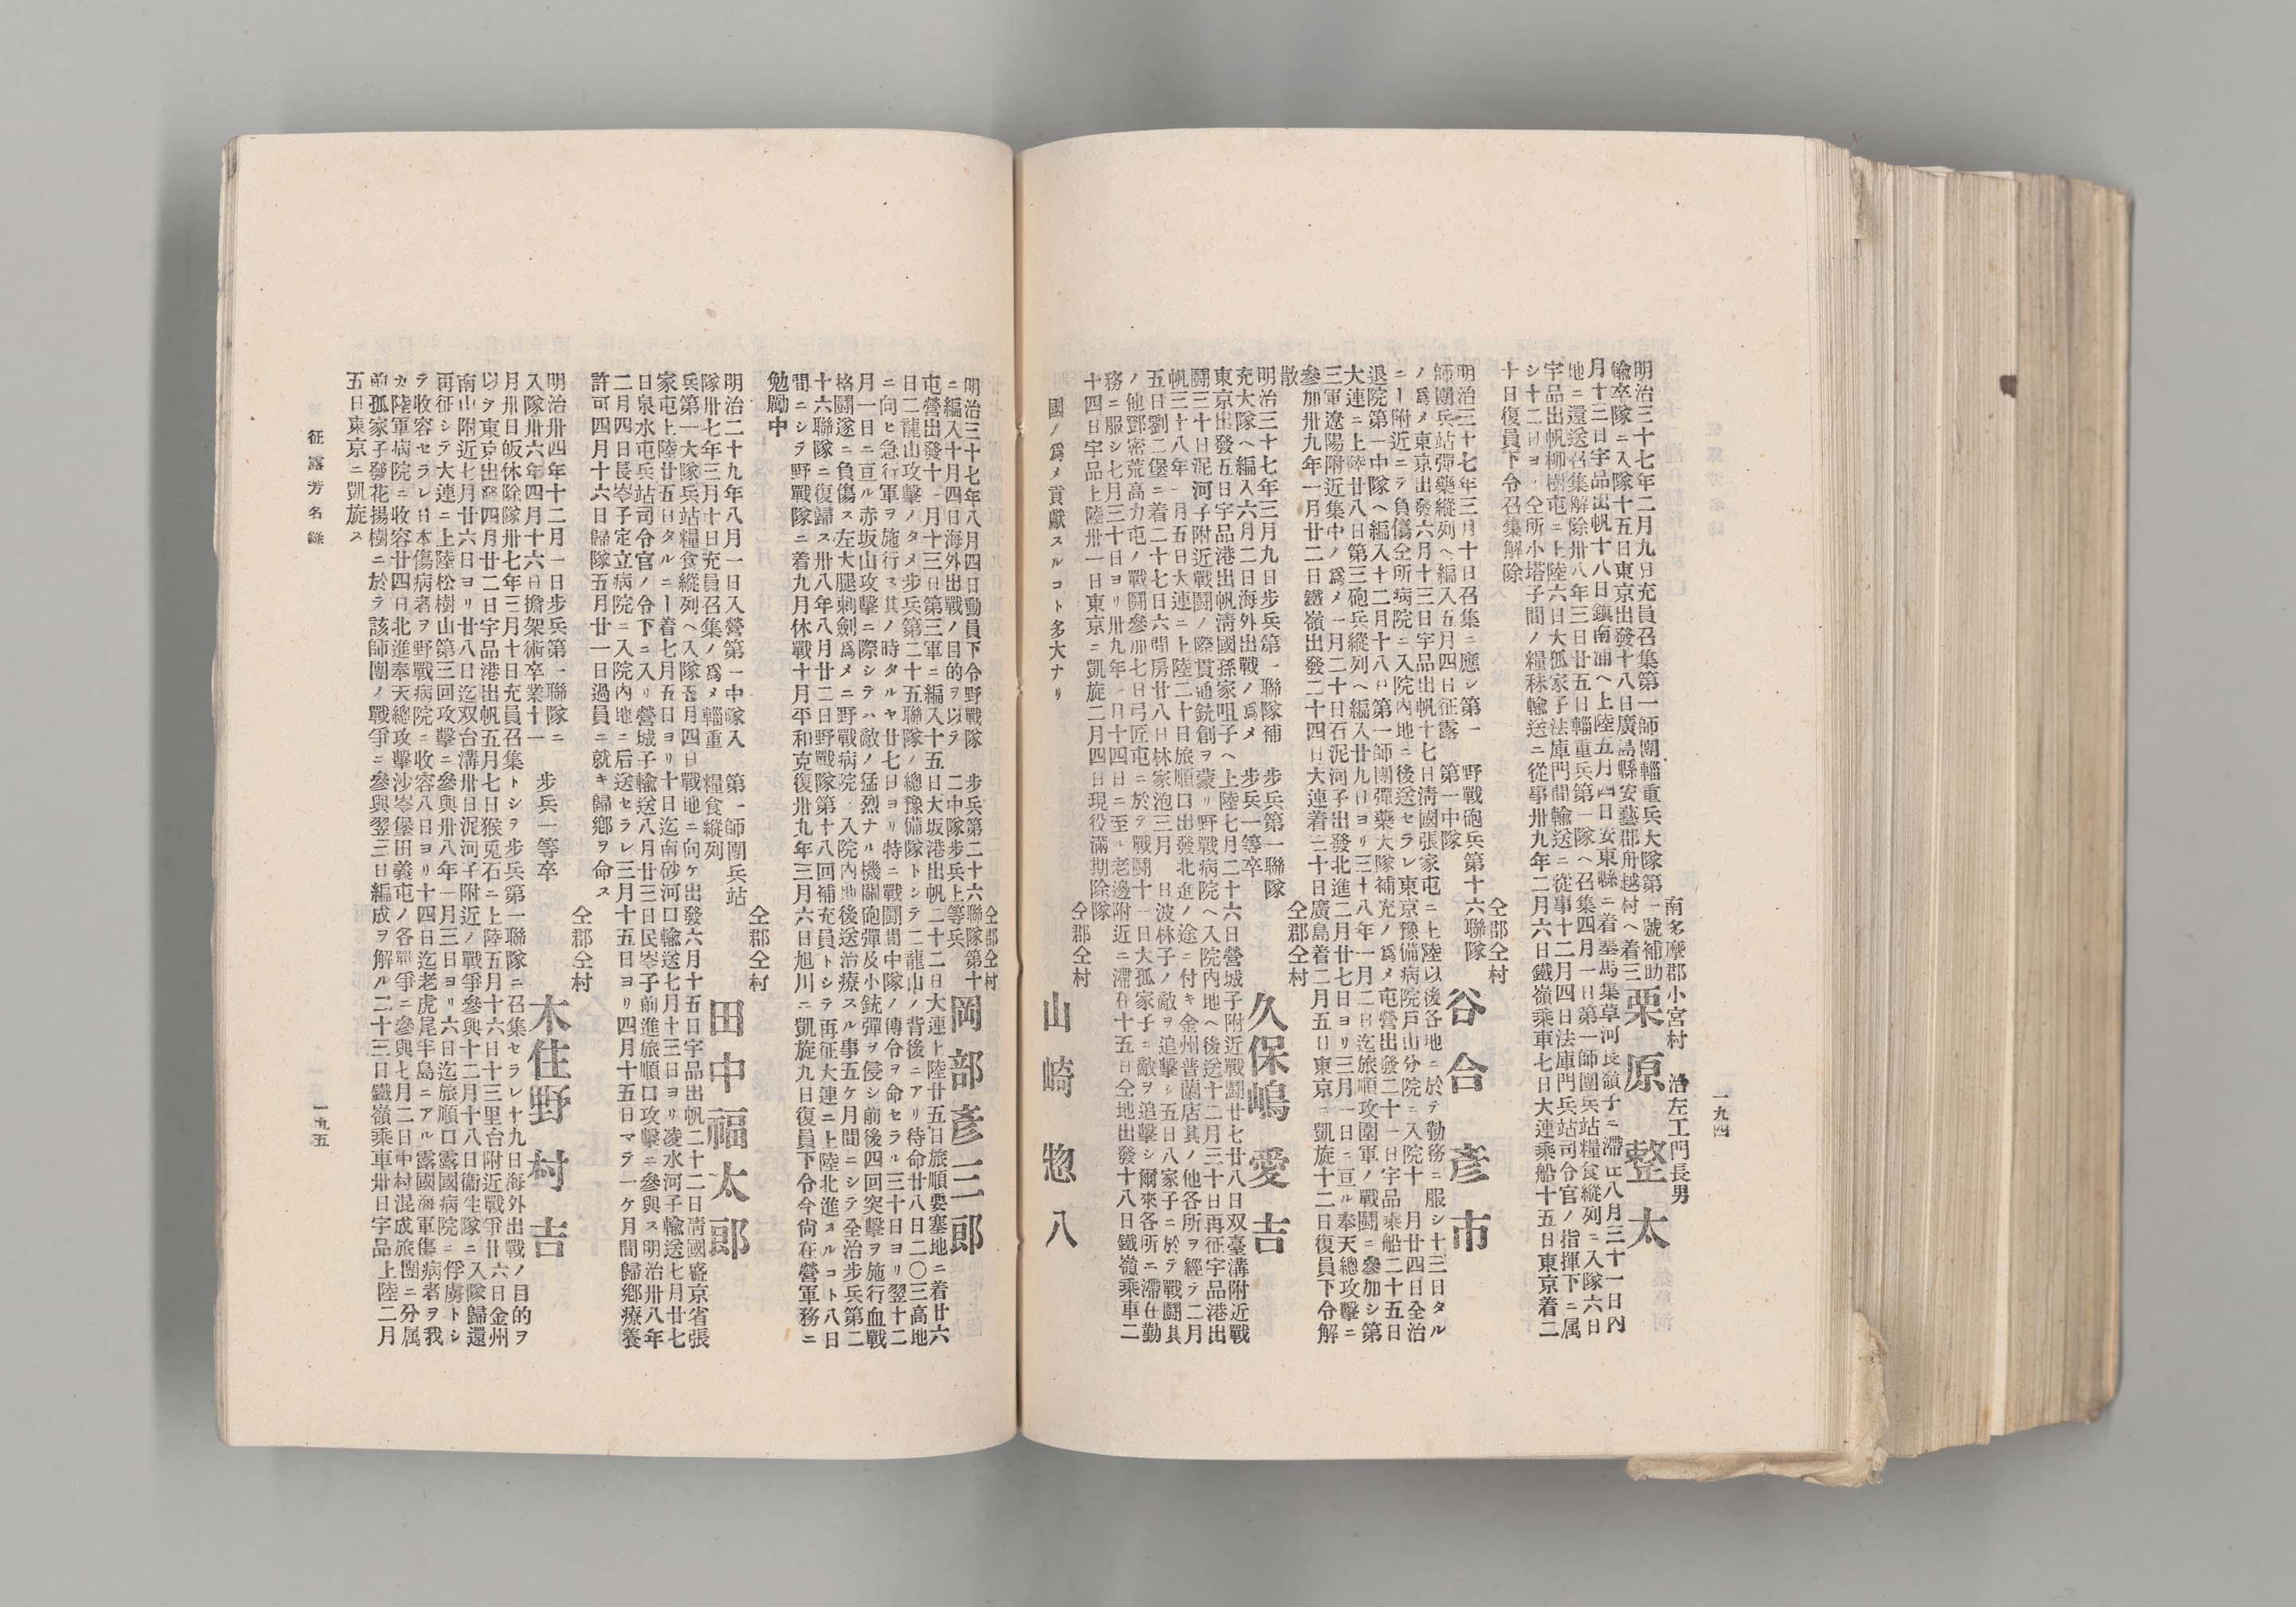 一九四
南多摩郡小宮村　治左工門長男
栗原整太
明治三十七年二月九日充員召集第一師團輜重兵大隊第一號補助
輸卒隊ニ入隊十五日東京出發十八日廣島縣安藝郡舟越村ヘ着三
月十二日宇品出帆十八日鎮南浦ヘ上陸五月四日安東縣ニ着塞馬集草河長嶺子ニ滯在八月三十一日內
地ニ還送召集解除卅八年三日廿五日輜重兵第一隊ヘ召集四月一日第一師團兵站糧食縱列ニ入隊六日
宇品出帆柳樹屯ニ上陸六日大孤家子法庫門間輸送ニ從事十二月四日法庫門兵站司令官ノ指揮下ニ属
シ十二日ヨリ仝所小塔子間ノ糧秣輸送ニ從事卅九年二月六日鐵嶺乘車七日大連乘船十五日東京着二
十日復員下令召集解除
仝郡仝村
谷合彥市
野戰砲兵第十六聯隊
第一中隊
明治三十七年三月十日召集ニ應シ第一
師團兵站彈藥縱列ヘ編入五月四日征露
ノ爲メ東京出發六月十三日宇品出帆十七日淸國張家屯ニ上陸以後各地ニ於テ勤務ニ服シ十三日タル
ニー附近ニテ負傷仝所病院ニ入院內地ニ後送セラレ東京豫備病院戸山分院ニ入院十一月廿四日全治
退院第一中隊ヘ編入十二月十八日第一師團彈藥大隊補充ノ爲メ屯營出發二十一日宇品乘船二十五日
大連ニ上陸廿八日第三砲兵縱列ヘ編入廿九日ヨリ三十八年一月二日迄旅順攻圍軍ノ戰鬪ニ參加シ第
三軍遼陽附近集中ノ爲メ一月二十日石泥河子出發北進二月廿七日ヨリ三月一日ニ亘ル奉天總攻擊ニ
參加卅九年一月廿二日鐵嶺出發二十四日大連着三十日廣島着二月五日東京ニ凱旋十二日復員下令解
散
仝郡仝村
久保嶋愛吉
步兵第一聯隊
步兵一等卒
明治三十七年三月九日步兵第一聯隊補
充大隊ヘ編入六月二日海外出戰ノ爲メ
東京出發五日宇品港出帆淸國孫家咀子ヘ上陸七月二十六日營城子附近戰鬪廿七廿八日双臺溝附近戰
鬪三十日泥河子附近戰鬪ノ際貫通銃創ヲ蒙リ野戰病院ヘ入院內地ヘ後送十二月三十日再征宇品港出
帆三十八年一月五日大連ニ上陸二十日旅順口出發北進ノ途ニ付キ金州普蘭店其ノ他各所ヲ經テ二月
五日劉二堡ニ着二十七日六間房廿八日林家泡三月一日波林子ノ敵ヲ追擊シ五日八家子ニ於テ戰鬪其
ノ他鄧密荒高力屯ノ戰鬪參加七日弓匠屯ニ於テ戰鬪十一日大孤家子ニ敵ヲ追擊シ爾來各所ニ滯在勤
務ニ服シ七月三十日ヨリ卅九年一月十四日ニ至ル老邊附近ニ滯在十五日仝地出發十八日鐵嶺乘車二
十四日宇品上陸卅一日東京ニ凱旋二月四日現役滿期除隊
仝郡仝村
山崎惣八
國ノ爲メ貢獻スルコト多大ナリ
仝郡仝村
岡部彥三郞
步兵第二十六聯隊第十
二中隊步兵上等兵
明治三十七年八月四日動員下令野戰隊
ニ編入十月四日海外出戰ノ目的ヲ以テ
屯營出發十一月十三日第三軍ニ編入十五日大坂港出帆二十二日大連上陸廿五日旅順要塞地ニ着廿六
日二龍山攻擊ノタメ步兵第二十五聯隊ノ總豫備隊トシテ二龍山ノ背後ニアリ待命廿八日二〇三高地
ニ向ヒ急行軍ヲ施行ス其ノ時タルヤ廿七日ヨリ特ニ戰鬪間中隊ノ傳令ヲ命セラル三十日ヨリ翌十二
月一日ニ亘ル赤坂山攻擊ニ際シテハ敵ノ猛烈ナル機關砲彈及小銃彈ヲ侵シ前後四回突擊ヲ施行血戰
格鬪遂ニ負傷ス左大腿刺劍爲メニ野戰病院ニ入院內地後送治療スル事五ケ月間ニシテ全治步兵第二
十六聯隊ニ復歸ス卅八年八月廿二日野戰隊第十八回補充員トシテ再征大連ニ上陸北進スルコト八日
間ニシテ野戰隊ニ着九月休戰十月平和克復卅九年三月六日旭川ニ凱旋九日復員下令今尙在營軍務ニ
勉勵中
仝郡仝村
田中福太郞
第一師團兵站
糧食縱列
明治二十九年八月一日入營第一中隊入
隊卅七年三月十日充員召集ノ爲メ輜重
兵第一大隊兵站糧食縱列ヘ入隊五月四日戰地ニ向ケ出發六月十五日宇品出帆二十二日淸國盛京省張
家屯上陸廿五日タルニー着七月五日ヨリ十日迄南砂河口輸送七月十三日ヨリ凌水河子輸送七月廿七
日泉水屯兵站司令官ノ令下ニ入リ營城子輸送八月廿三日民岑子前進旅順口攻擊ニ參與ス明治卅八年
二月四日長岺子定立病院ニ入院內地ニ后送セラレ三月十五日ヨリ四月十五日マテ一ケ月間歸鄉療養
許可四月十六日歸隊五月廿一日過員ニ就キ歸鄉ヲ命ス
仝郡仝村
木住野村吉
步兵一等卒
明治卅四年十二月一日步兵第一聯隊ニ
入隊卅六年四月十六日擔架術卒業十一
月卅日皈休除隊卅七年三月十日充員召集トシテ步兵第一聯隊ニ召集セラレ十九日海外出戰ノ目的ヲ
以テ東京出發四月廿二日宇品港出帆五月七日猴兎石ニ上陸五月十六日十三里台附近戰爭廿六日金州
南山附近七月廿六日ヨリ廿八日迄双台溝卅日泥河子附近ノ戰爭參與十二月十八日衞生隊ニ入隊歸還
再征シテ大連ニ上陸松樹山第三回攻擊ニ參與卅八年一月三日ヨリ六日迄旅順口露國病院ニ俘虜トシ
テ收容セラレ日本傷病者ヲ野戰病院ニ收容八日ヨリ十四日迄老虎尾半島ニアル露國海軍傷病者ヲ我
カ陸軍病院ニ收容廿四日北進奉天總攻擊沙岺堡田義屯ノ各戰爭ニ參與七月二日中村混成旅團ニ分属
前孤家子發花揚樹ニ於テ該師團ノ戰爭ニ參與翌三日編成ヲ解ル二十三日鐵嶺乘車卅日宇品上陸二月
五日東京ニ凱旋ス
征露芳名錄
一九五